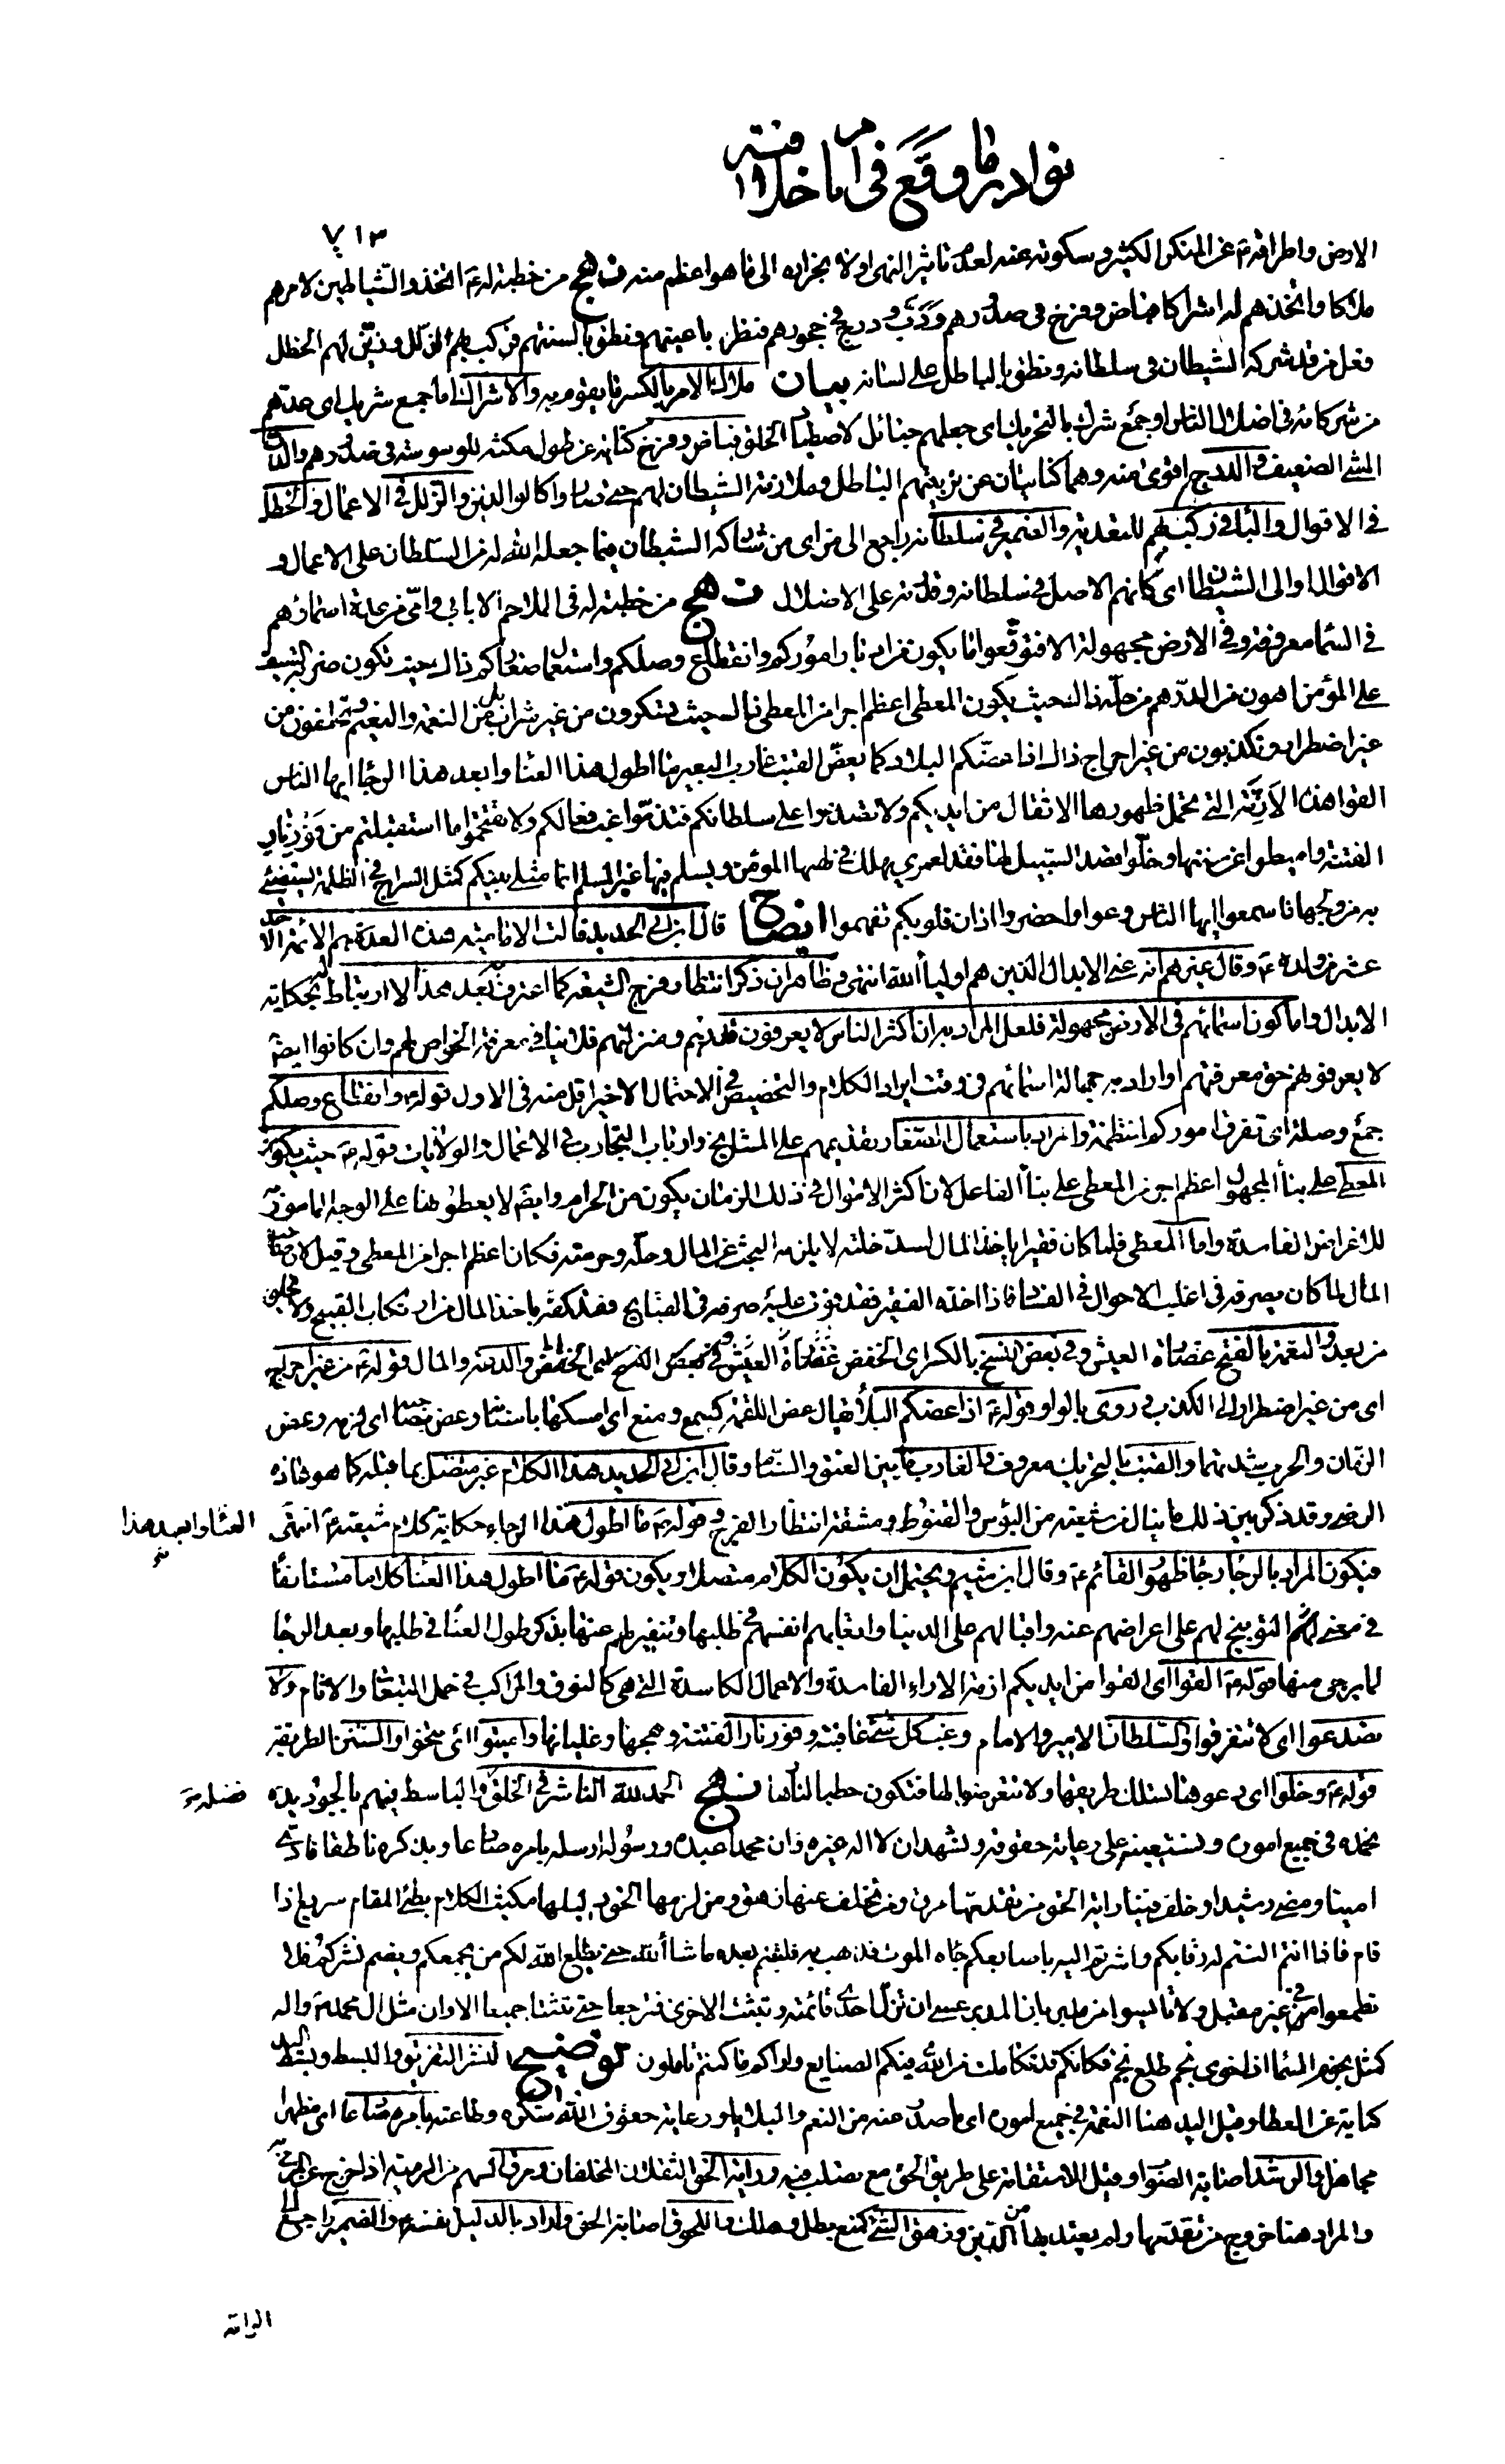 نوادر ما وقع فى امام خلافته
٧١٣
الارض واطرافه عن المنكر الكثير وسكوته عنه لعدم تاثير النهى اولا نجراره الى ما هو اعظم منه نهج من خطبة له ع اتخذوا الشيطان لامرهم
ملاكا واتخذهم له اشراكا فباض وفرخ فى صدورهم ودب ودرج فى حجورهم فنظر باعينهم ونطق بالسنتهم فركب بهم الزلل وزين لهم الخطل
فعل من قد شركه الشيطان فى سلطانه ونطق بالباطل على لسانه بيان ملاك الامر بالكسر ما يقوم به والاشراك اما جمع شريك اى عدهم
من شركائه فى اضلال الناس او جمع شرك بالتحريك اى جعلهم حبائل لاصطياد الخلق فباض وفرخ كناية عن طول مكثه للوسوسة فى صدورهم والدب
المشى الضعيف والدرج اقوى منه وهما كنايتان عن تربيتهم الباطل وملازمة الشيطان لهم حتى صاروا كالوالدين والزلل فى الاعمال والخطل
فى الاقوال والباء فى ركب بهم للتعدية والضمير فى سلطانه راجع الى من اى من شاركه الشيطان فيما جعله الله له من السلطان على الاعمال و
الاقوال او الى الشيطان اى كانهم الاصل فى سلطانه وقدرته على الاضلال نهج من خطبة له فى الملاحم الا بابى وامى من عدة اسماؤهم
فى السماء معروفة وفى الارض مجهولة الا فتوقعوا ما يكون من ادبار اموركم وانقطاع وصلكم واستعمال صغاركم ذاك حيث تكون ضربة السيف
على المؤمن اهون من الدرهم من حله ذاك حيث يكون المعطى اعظم اجرا من المعطى ذاك حيث تسكرون من غير شراب بل من النعمة والنعيم وتحلفون من
غير اضطرار وتكذبون من غير احراج ذاك اذا عضكم البلاء كما يعض القتب غارب البعير ما اطول هذا العناء وابعد هذا الرجاء ايها الناس
القوا هذه الازمة التى تحمل ظهورها الاثقال من ايديكم ولا تصدعوا على سلطانكم فتذموا غب فعالكم ولا تقتحموا ما استقبلتم من فور نار
الفتنة واميطوا عن سننها وخلوا قصد السبيل لها فقد لعمرى يهلك فى لهبها المؤمن ويسلم فيها غير المسلم انما مثلى بينكم كمثل السراج فى الظلمة يستضئ
به من ولجها فاسمعوا ايها الناس وعوا واحضروا اذان قلوبكم تفهموا ايضاح قال ابن ابى الحديد قالت الامامية هذه العدة هم الائمة الاحد
عشر من ولده ع وقال غيرهم انه عنى الابدال الذين هم اولياء الله انتهى وظاهر ان ذكر انتظار فرج الشيعة كما اعترف به بعد هذا لا ارتباط له بحكاية
الابدال واما كون اسمائهم فى الارض مجهولة فلعل المراد به ان اكثر الناس لا يعرفون قدرهم ومنزلتهم فلا ينافى معرفة الخواص لهم وان كانوا ايضا
لا يعرفونهم حق معرفتهم او اراد به جهالة اسمائهم فى وقت ايراد الكلام والتخصيص فى الاحتمال الاخير اقل منه فى الاول قوله ع وانقطاع وصلكم
جمع وصلة اى تفرق اموركم المنتظمة والمراد باستعمال الصغار تقديمهم على المشايخ وارباب التجارب فى الاعمال والولايات قوله ع حيث يكون
المعطى على بناء المجهول اعظم اجرا من المعطى على بناء الفاعل لان اكثر الاموال فى ذلك الزمان يكون من الحرام وايضا لا يعطونها على الوجه المامور به
للاغراض الفاسدة واما المعطى فلما كان فقيرا ياخذ المال لسد خلته لا يلزمه البحث عن المال وحله وحرمته فكان اعظم اجرا من المعطى وقيل لان صاحب
المال لما كان يصرفه فى اغلب الاحوال فى الفساد فاذا اخذه الفقير فقد فوت عليه صرفه فى القبايح فقد كفه باخذ المال من ارتكاب القبيح ولا يخلو
من بعد والنعمة بالفتح غضارة العيش وفى بعض النسخ بالكسر اى الخفض والدعة والمال قوله ع من غير احراج
اى من غير اضطرار الى الكذب وروى بالواو قوله ع اذا عضكم البلاء يقال عض اللقمة كسمع ومنع اى امسكها باسنانه وعض بصاحبه اى لزمه وعض
الزمان والحرب شدتهما والقتب بالتحريك معروف والغارب ما بين العنق والسنام وقال ابن ابى الحديد هذا الكلام غير متصل بما قبله كما هو عادة
الرضى وقد ذكر بين ذلك ما ينال من شيعته من البؤس والقنوط ومشقة انتظار الفرج وقوله ع ما اطول هذا الرجاء حكاية كلام شيعته ع انتهى
العناء وابعد هذا
فيكون المراد بالرجاء رجاء ظهور القائم ع وقال ابن ميثم ويحتمل ان يكون الكلام متصلا ويكون قوله ع ما اطول هذا العناء كلاما مستانفا
فى معنى التوبيخ لهم على اعراضهم عنه واقبالهم على الدنيا واتعابهم انفسهم فى طلبها وتنفير لهم عنها بذكر طول العناء فى طلبها وبعد الرجاء
لما يرجى منها قوله ع القوا اى القوا من ايديكم ازمة الاراء الفاسدة والاعمال الكاسدة التى هى كالنوق والمراكب فى حمل التبعات والاثام ولا
تصدعوا اى لا تتفرقوا والسلطان الامير والامام وغب كل شئ عاقبته وفور نار الفتنة وهجها وغليانها واميطوا اى تنحوا والسنن الطريقة
قوله ع وخلوا اى دعوها تسلك طريقها ولا تتعرضوا لها فتكون حطبا لنارها نهج الحمد لله الناشر فى الخلق والباسط فيهم بالجود يده
فضله
نحمده فى جميع اموره ونستعينه على رعاية حقوقه ونشهد ان لا اله غيره وان محمدا عبده ورسوله ارسله بامره صادعا وبذكره ناطقا فادى
امينا ومضى رشيدا وخلف فينا راية الحق من تقدمها مرق ومن تخلف عنها زهق ومن لزمها لحق دليلها مكيث الكلام بطئ القيام سريع اذا
قام فاذا انتم النتم له رقابكم واشرتم اليه باصابعكم جاءه الموت فذهب به فلبثتم بعده ما شاء الله حتى يطلع الله لكم من يجمعكم ويضم نشركم فلا
تطمعوا فى غير مقبل ولا تايسوا من مدبر فان المدبر عسى ان تزل احدى قائمتيه وتثبت الاخرى فترجعا حتى تثبتا جميعا الا وان مثل ال محمد ص واله
كمثل نجوم السماء اذا خوى نجم طلع نجم فكانكم قد تكاملت من الله فيكم الصنايع واراكم ما كنتم تاملون توضيح النشر التفريق والبسط وبسط اليد
كناية عن العطاء وقيل اليد هنا النعمة فى جميع اموره اى ما صدر عنه من النعم والبلايا ورعاية حقوق الله شكره وطاعته بامره صادعا اى مظهرا
مجاهرا والرشد اصابة الصواب وقيل الاستقامة على طريق الحق مع تصلب فيه وراية الحق الثقلان المخلفان ومرق السهم من الرمية اذا خرج عن المرمى به
والمراد هنا خروج من تقدمها ولم يعتد بها من الدين وزهق الشئ كمنع بطل وهلك واللحوق اصابة الحق واراد بالدليل نفسه ع والضمير راجع الى
الراية